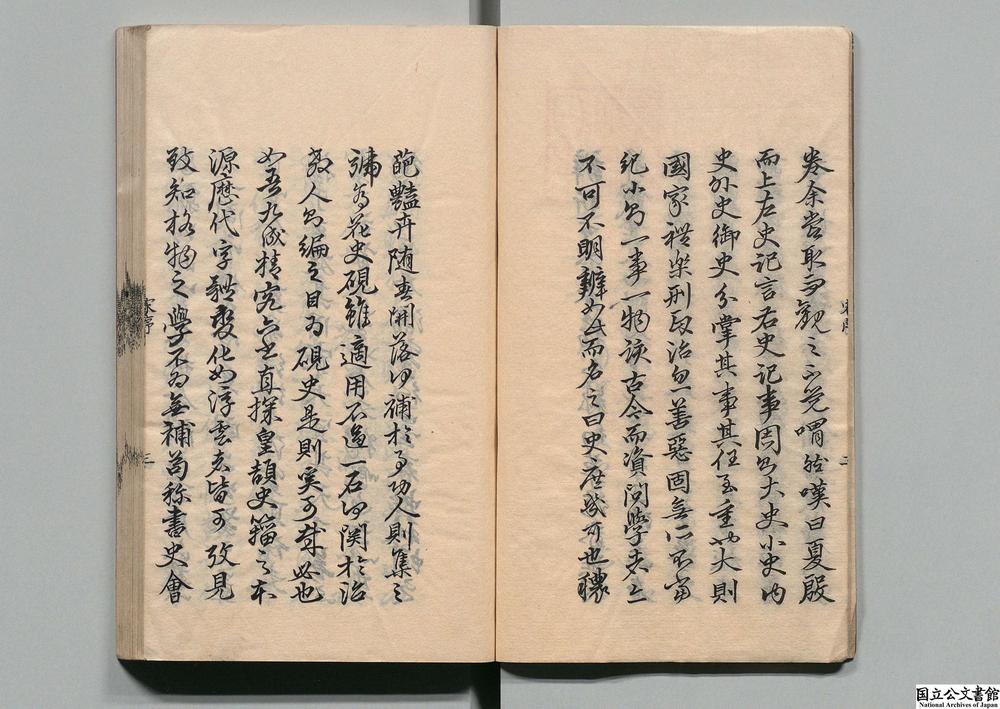 卷余嘗取而觀之不覺喟然嘆曰夏殷
而上左史記言右史記事周則大史小史内
史外史御史分掌其事其任至重也大則
國家禮樂刑政治忽善惡固無所不當
紀小則一事一物該古今而資問學者亦
不可不明辯如此而名之曰史庶幾可也穠
宋序 二
葩豔卉随春開落何補於事功人則集之
號為花史硯雖適用不過一石何関於治
教人則編之目為硯史是則奚可哉必也
如吾九成精究六書直探皇頡史籀之本
源歷代字體變化如浮雲者皆可攷見
致知格物之學不為無補苟称書史會
宋序 三
国立公文書館
National Archives of Japan